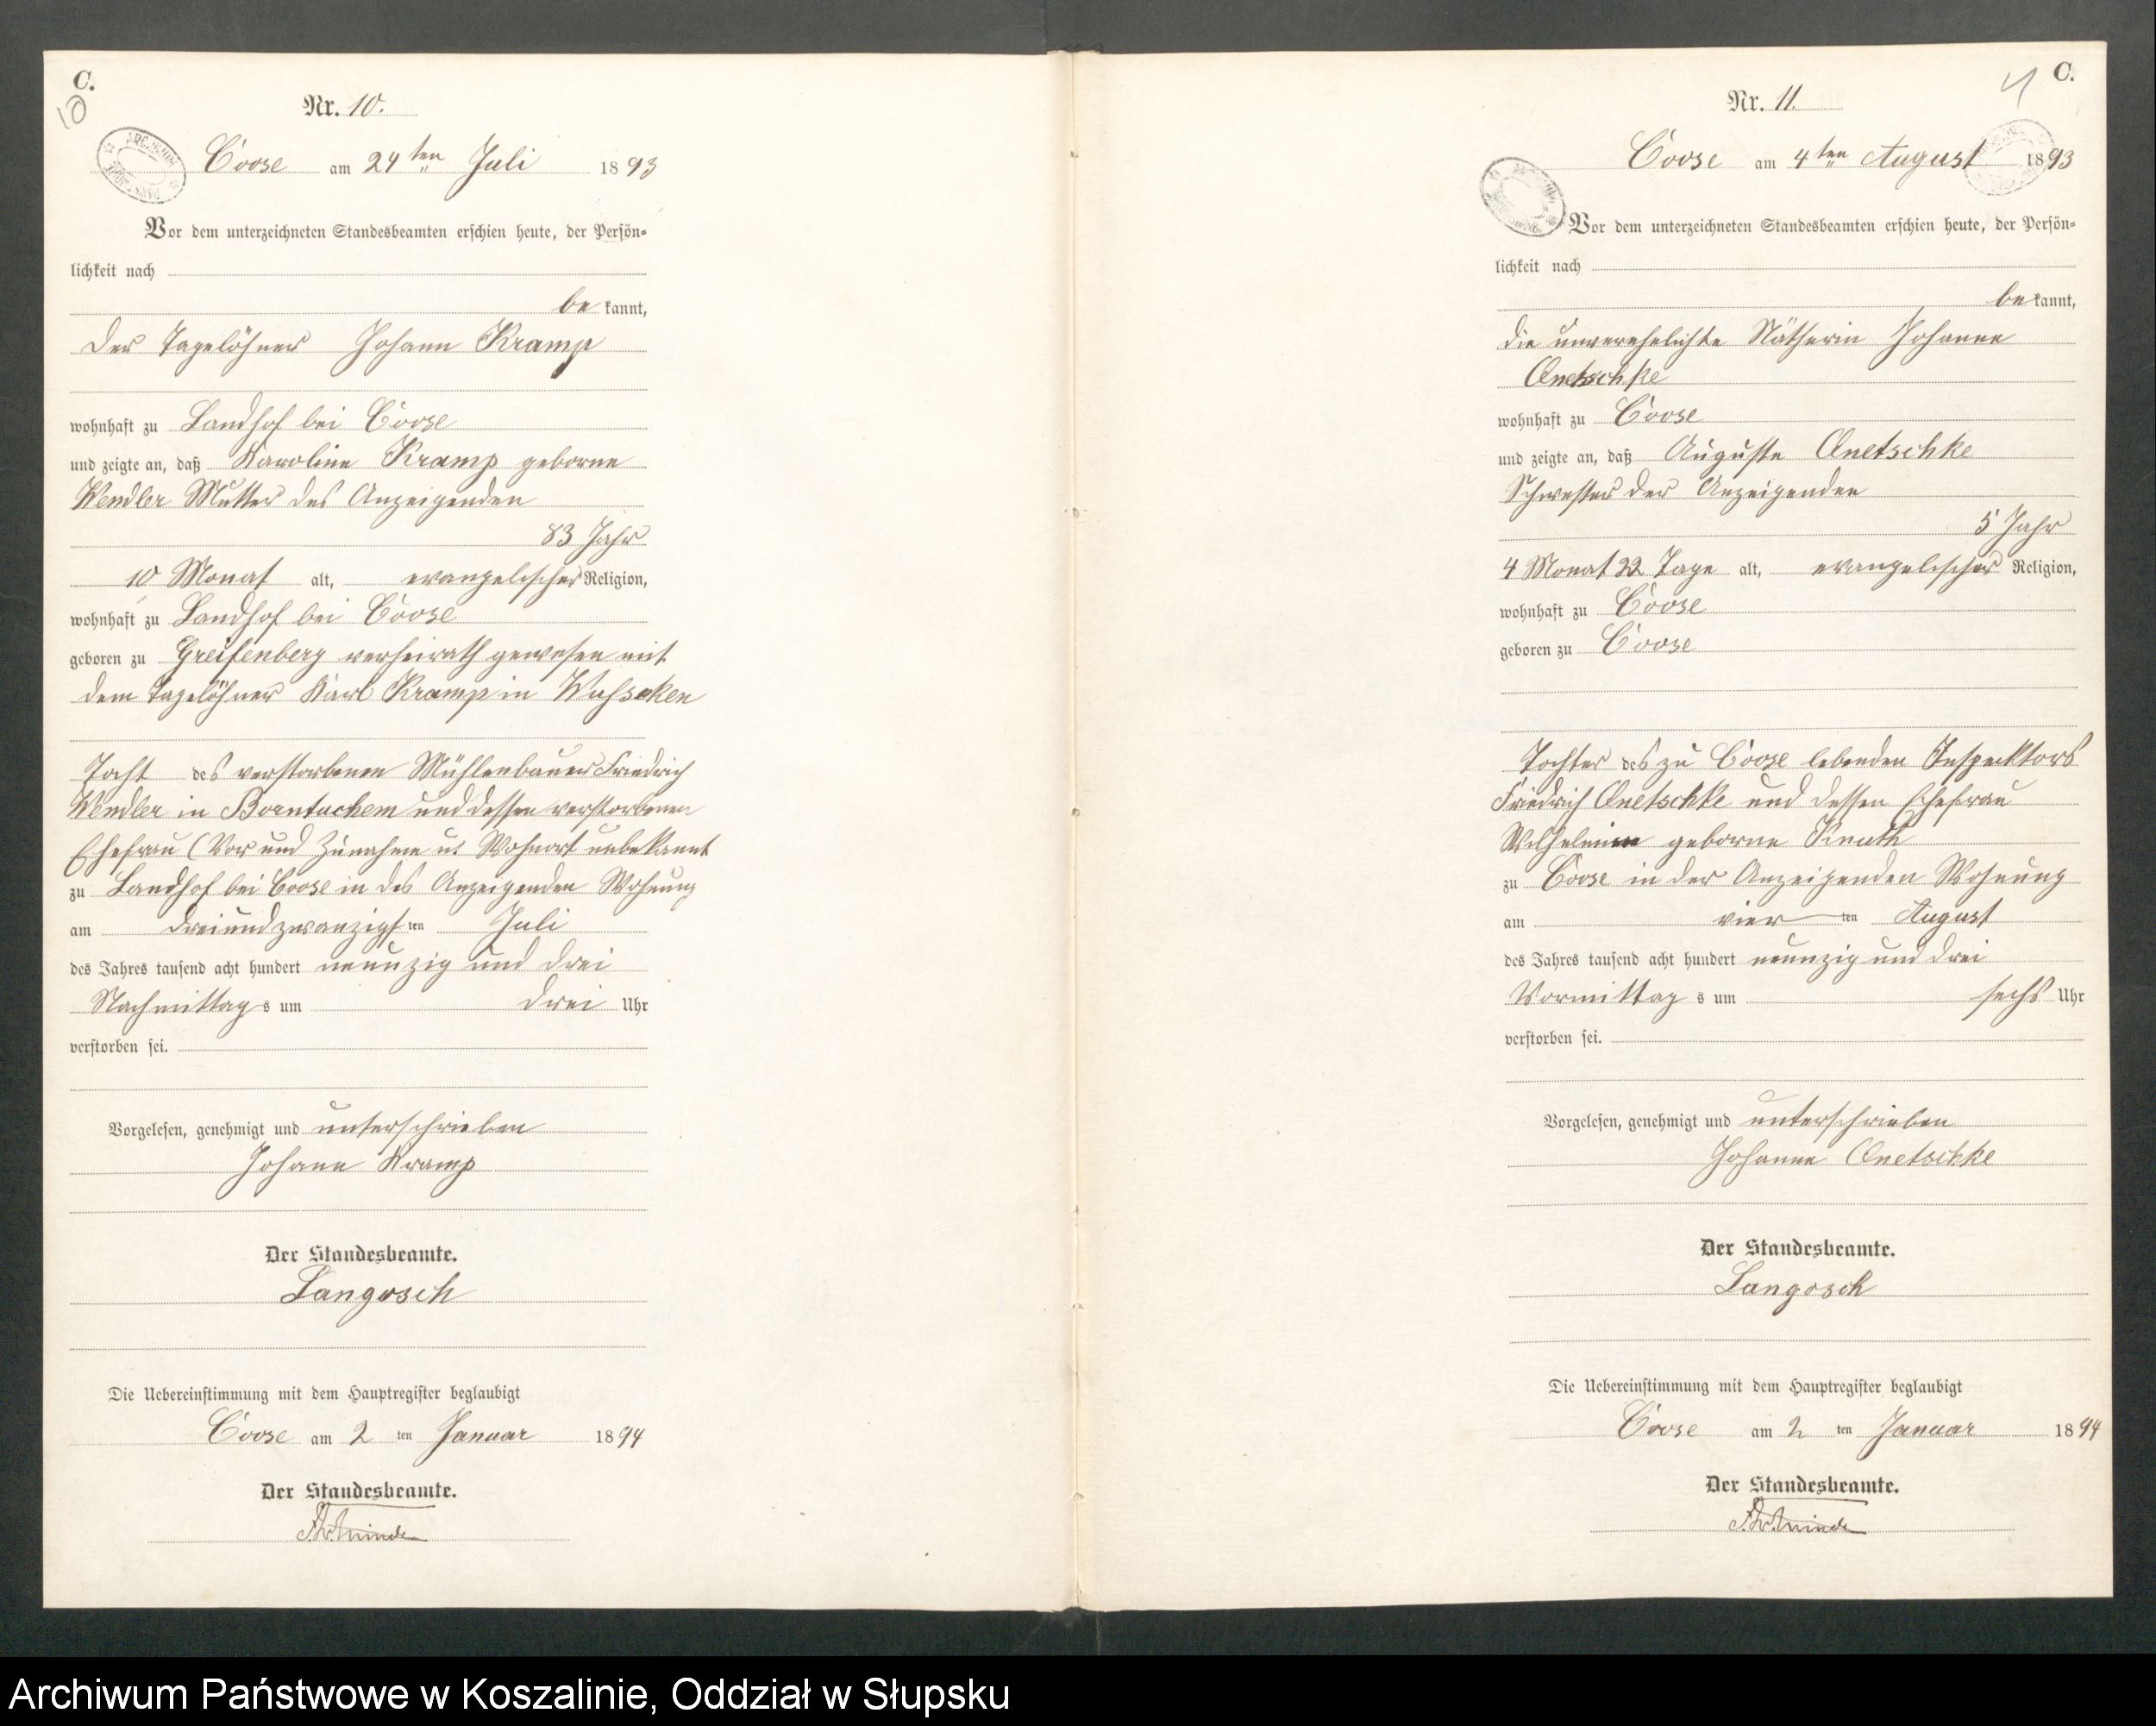 C.
10
Nr. 10.
Coose am 24ten Juli 1893
Vor dem unterzeichneten Standesbeamten erschien heute, der Persön-
lichkeit nach
be kannt,
der Tagelöhner Johann Kramp
wohnhaft zu Landhof bei Coose
und zeigte an, daß Karoline Kramp geborne
Wendler Mutter des Anzeigenden
83 Jahr
10 Monat alt, evangelischer Religion,
wohnhaft zu Landhof bei Coose
geboren zu Greifenberg verheirath gewesen mit
dem Tagelöhner Karl Kramp in Wusseken
Tocht des verstorbenen Mühlenbauer Friedrich
Wendler in Borntuchem und dessen verstorbenen
Ehefrau (Vor und Zunahme u. Wohnort unbekannt
zu Landhof bei Coose in des Anzeigenden Wohnung
am dreiundzwanzigsten Juli
des Jahres tausend acht hundert neunzig und drei
Nachmittags um drei Uhr
verstorben sei.
Vorgelesen, genehmigt und unterschrieben
Johann Kramp
Der Standesbeamte.
Langosch
Die Uebereinstimmung mit dem Hauptregister beglaubigt
Coose am 2 ten Januar 1894
Der Standesbeamte.
C.
Nr. 11.
Coose am 4ten August 1893
Vor dem unterzeichneten Standesbeamten erschien heute, der Persön-
lichkeit nach
be kannt,
die unverehelichte Nätherin Johanne
Onetschke
wohnhaft zu Coose
und zeigte an, daß Auguste Onetschke
Schwester der Anzeigenden
5 Jahr
4 Monat 22 Tage alt, evangelischer Religion,
wohnhaft zu Coose
geboren zu Coose
Tochter des zu Coose lebenden Inspecktors
Friedrich Onetschke und dessen Ehefrau
Wilhelmine geborne Knuth
zu Coose in der Anzeigenden Wohnung
am vier ten August
des Jahres tausend acht hundert neunzig und drei
Vormittags um sechs Uhr
verstorben sei.
Vorgelesen, genehmigt und unterschrieben
Johanne Onetschke
Der Standesbeamte.
Langosch
Die Uebereinstimmung mit dem Hauptregister beglaubigt
Coose am 2 ten Januar 1894
Der Standesbeamte.
Archiwum Państwowe w Koszalinie, Oddział w Słupsku